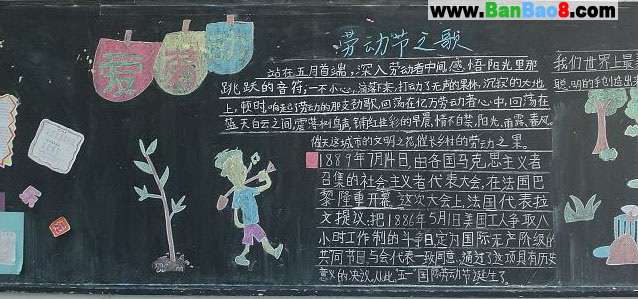 www.BanBao8.com
爱劳动
劳动节之歌
站在五月首端，深入劳动者中间感悟阳光里那
跳跃的音符，一不小心，滴落下来，打动了无声的果林，沉寂的大地
上，顿时，响起了劳动的那支劲歌，回荡在亿万劳动者心中，回荡在
蓝天白云之间，震落树鸟声，铺红炫彩的早晨，情不自禁，阳光，雨露，春风，
催天这城市的文明之花，催长乡村的劳动之果。
1889年7月14日，由各国马克思主义者
召集的社会主义者代表大会，在法国巴
黎隆重开幕。这次大会上，法国代表拉
文提议：把1886年5月1日美国工人争取八
小时工作制的斗争日定为国际无产阶级的
共同节日与会代表一致同意，通过了这项具有历史
意义的决议，从此，五一国际劳动节诞生了。
我们世界上最
聪明的手创造出